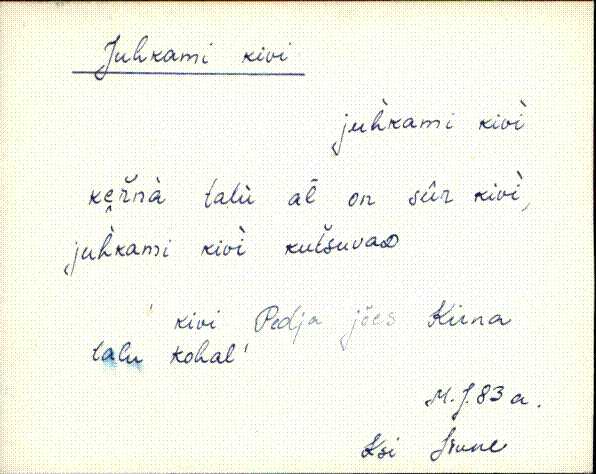 Juhkami kivi
juh̀kami kivì
talù al̄ on sûr kivì,
juh̀kami kivì kut́suvaD
' kivi Pedja jões
talu kohal'
M. J. 83 a.
Ksi